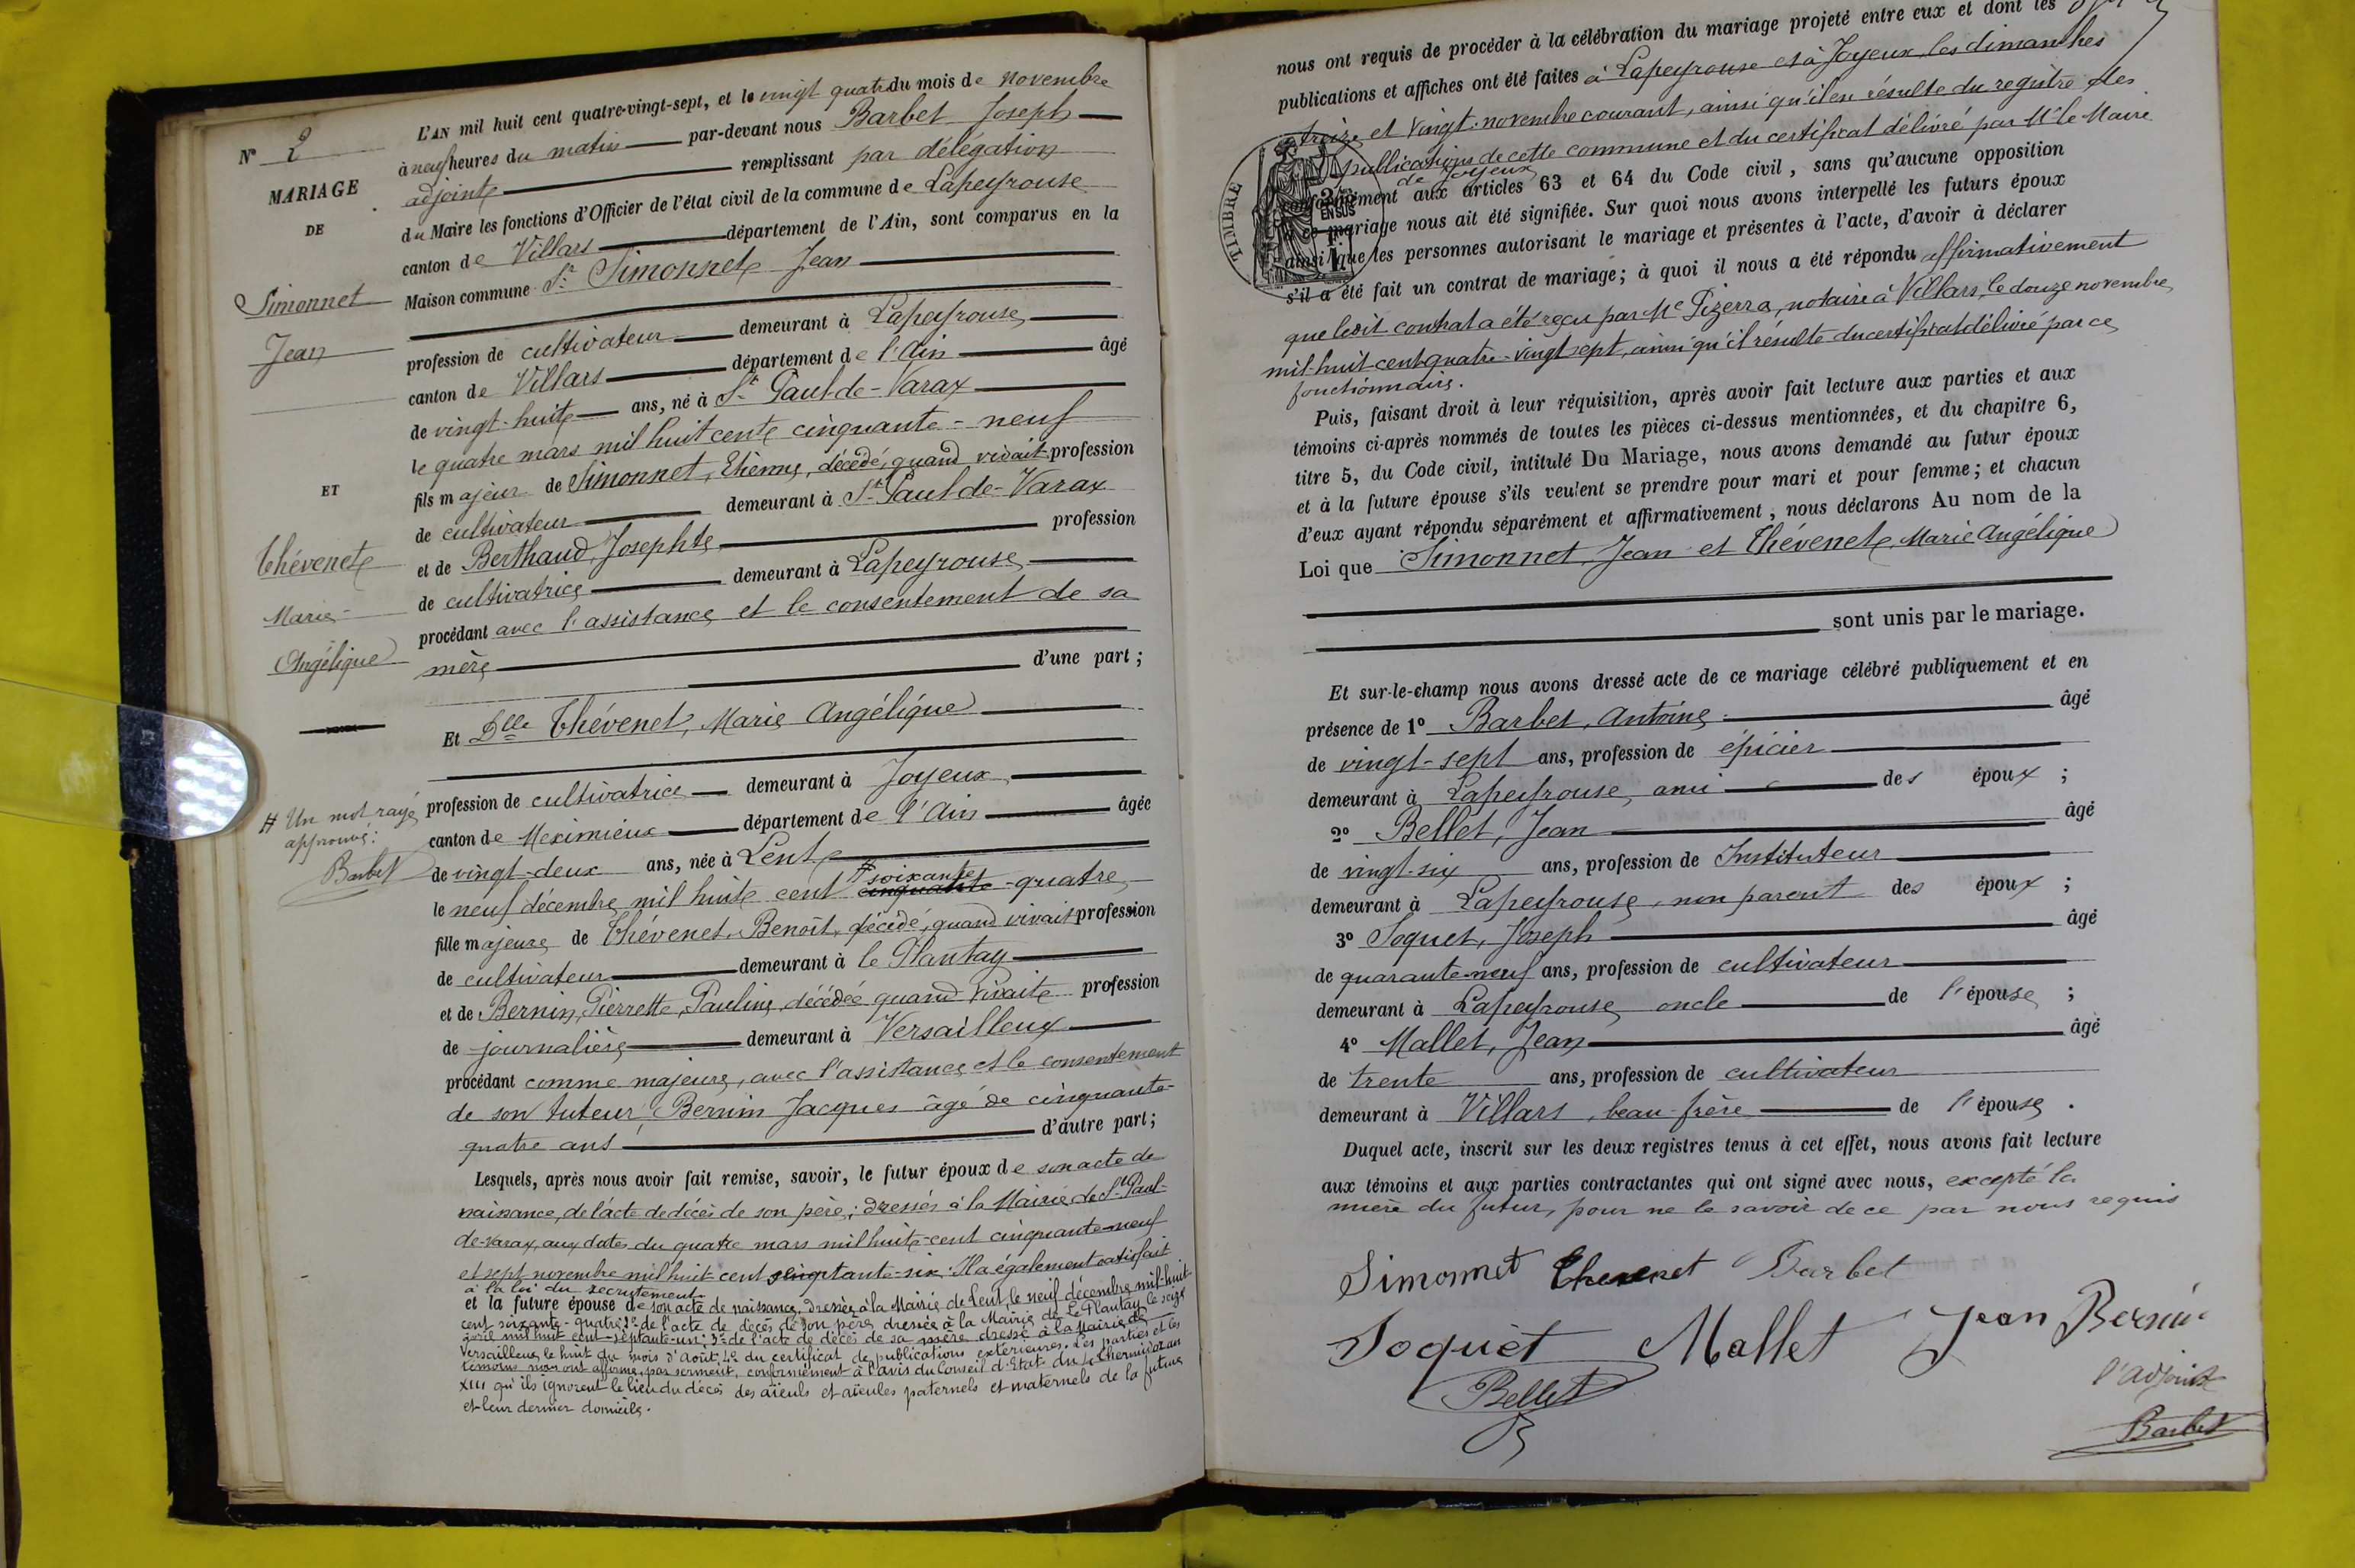 N° 2
MARIAGE
DE
Simonnet
Jean
ET
Thévenet
Marie
Angélique
# Un mot rayé
approuvé :
Barbet
L'AN mil huit cent quatre-vingt-sept, et le vingt quatre du mois de novembre
à neuf heures du matin par-devant nous Barbet Joseph
adjoint remplissant par délégation
du Maire les fonctions d'Officier de l'état civil de la commune de Lapeyrouse
canton de Villars département de l'Ain, sont comparus en la
Maison commune Sr Simonnet Jean
profession de cultivateur demeurant à Lapeyrouse
canton de Villars département de l'Ain âgé
de vingt-huit ans, né à St Paul-de-Varax
le quatre mars mil huit cent cinquante-neuf
fils majeur de Simonnet, Etienne, décédé, quand vivait profession
de cultivateur demeurant à St Paul-de-Varax
et de Berthaud, Josephte profession
de cultivatrice demeurant à Lapeyrouse
procédant avec l'assistance et le consentement de sa
mère d'une part ;
Et Dlle Thévenet, Marie Angélique
profession de cultivatrice demeurant à Joyeux
canton de Meximieux département de l'Ain âgée
de vingt-deux ans, née à Lent
# soixante
le neuf décembre mil huit cent cinquante-quatre
fille majeure de Thévenet, Benoît, décédé, quand vivait profession
de cultivateur demeurant à le Plantay
et de Bernin, Pierrette, Pauline, décédée quand vivait profession
de journalière demeurant à Versailleux
procédant comme majeure, avec l'assistance et le consentement
de son tuteur, Bernin Jacques âgé de cinquante-
quatre ans d'autre part ;
Lesquels, après nous avoir fait remise, savoir, le futur époux de son acte de
naissance, de l'acte de décès de son père ; dressés à la Mairie de St Paul-
de-Varax, aux dates du quatre mars mil huit-cent cinquante-neuf
et sept novembre mil huit cent septante-six. Il a également satisfait
à la loi du recrutement
et la future épouse de son acte de naissance, dressé à la Mairie de Lent, le neuf décembre mil-huit
cent soixante-quatre, 2° de l'acte de décès de son père dressé à la Mairie de Le Plantay le seize
avril mil huit cent-septante-un ; 3° de l'acte de décès de sa mère dressé à la Mairie de
Versailleux le huit du mois d'août, 4° du certificat de publications extérieures. Les parties et les
témoins nous ont affirmé, par serment, conformément à l'avis du Conseil d'Etat du 4 Thermidor an
XIII qu'ils ignorent le lieu du décès des aïeuls et aïeules paternels et maternels de la future
et leur dernier domicile.
nous ont requis de procéder à la célébration du mariage projeté entre eux et dont les
publications et affiches ont été faites à Lapeyrouse et à Joyeux, les dimanches
treize et vingt novembre courant, ainsi qu'il en résulte du registre des
publications de cette commune et du certificat délivré par Mr le Maire
de Joyeux
conformément aux articles 63 et 64 du Code civil, sans qu'aucune opposition
à ce mariage nous ait été signifiée. Sur quoi nous avons interpellé les futurs époux
ainsi que les personnes autorisant le mariage et présentes à l'acte, d'avoir à déclarer
s'il a été fait un contrat de mariage ; à quoi il nous a été répondu affirmativement
que ledit contrat a été reçu par Me Pizerra, notaire à Villars, le douze novembre
mil-huit-cent-quatre-vingt sept, ainsi qu'il résulte du certificat délivré par ce
fonctionnaire.
TIMBRE
EN SUS
Puis, faisant droit à leur réquisition, après avoir fait lecture aux parties et aux
témoins ci-après nommés de toutes les pièces ci-dessus mentionnées, et du chapitre 6,
titre 5, du Code civil, intitulé Du Mariage, nous avons demandé au futur époux
et à la future épouse s'ils veulent se prendre pour mari et pour femme ; et chacun
d'eux ayant répondu séparément et affirmativement, nous déclarons Au nom de la
Loi que Simonnet, Jean et Thévenet, Marie Angélique
sont unis par le mariage.
Et sur-le-champ nous avons dressé acte de ce mariage célébré publiquement et en
présence de 1° Barbet, Antoine âgé
de vingt-sept ans, profession de épicier
demeurant à Lapeyrouse, ami des époux ;
2° Bellet, Jean âgé
de vingt-six ans, profession de Instituteur
demeurant à Lapeyrouse, non parent des époux ;
3° Soquet, Joseph âgé
de quarante-neuf ans, profession de cultivateur
demeurant à Lapeyrouse oncle de l'épouse ;
4° Mallet, Jean âgé
de trente ans, profession de cultivateur
demeurant à Villars, beau-frère de l'épouse.
Duquel acte, inscrit sur les deux registres tenus à cet effet, nous avons fait lecture
aux témoins et aux parties contractantes qui ont signé avec nous, excepté la
mère du futur, pour ne le savoir de ce par nous requis
Simonnet Thevenet Barbet
Soquet Mallet Jean Bernin
Bellet l'adjoint
Barbet